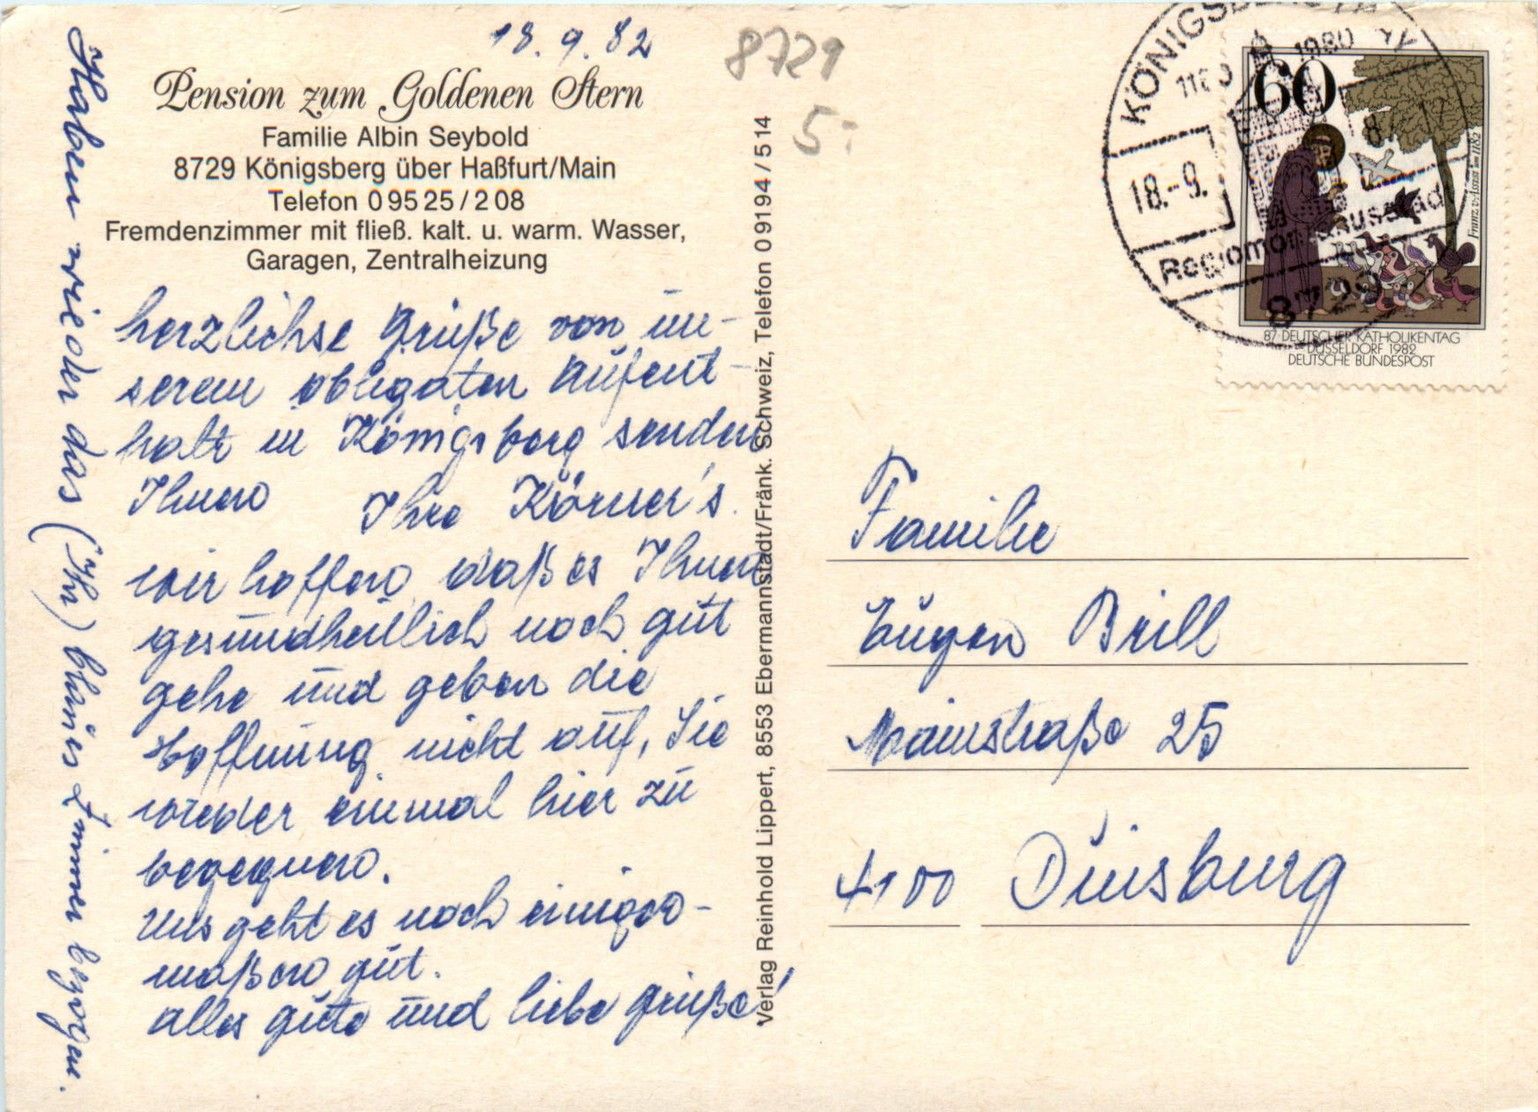 18.9.82
8729
5.-
Pension zum Goldenen Stern
Familie Albin Seybold
8729 Königsberg über Haßfurt/Main
Telefon 0 95 25 / 2 08
Fremdenzimmer mit fließ. kalt. u. warm. Wasser,
Garagen, Zentralheizung
herzlichse Grüße von un-
serem obligaten Aufent-
halt in Königsberg senden
Ihnen Ihre Körner's.
wir hoffen, daß es Ihnen
gesundheitlich noch gut
gehe und geben die
Hoffnung nicht auf, Sie
wieder einmal hier zu
begegnen.
Uns geht es noch einiger-
maßen gut.
alles gute und liebe grüße!
Haben wieder das (Ihr) blaues Zimmer bezogen.
Verlag Reinhold Lippert, 8553 Ebermannstadt/Fränk. Schweiz, Telefon 0 91 94 / 5 14
KÖNIGSBERG
1180 1980
18.-9.
Regiomontanusstadt
8729
60
Franz v. Assisi * um 1182
87. DEUTSCHER KATHOLIKENTAG
DÜSSELDORF 1982
DEUTSCHE BUNDESPOST
Familie
Eugen Brill
Mainstraße 25
4100 Duisburg